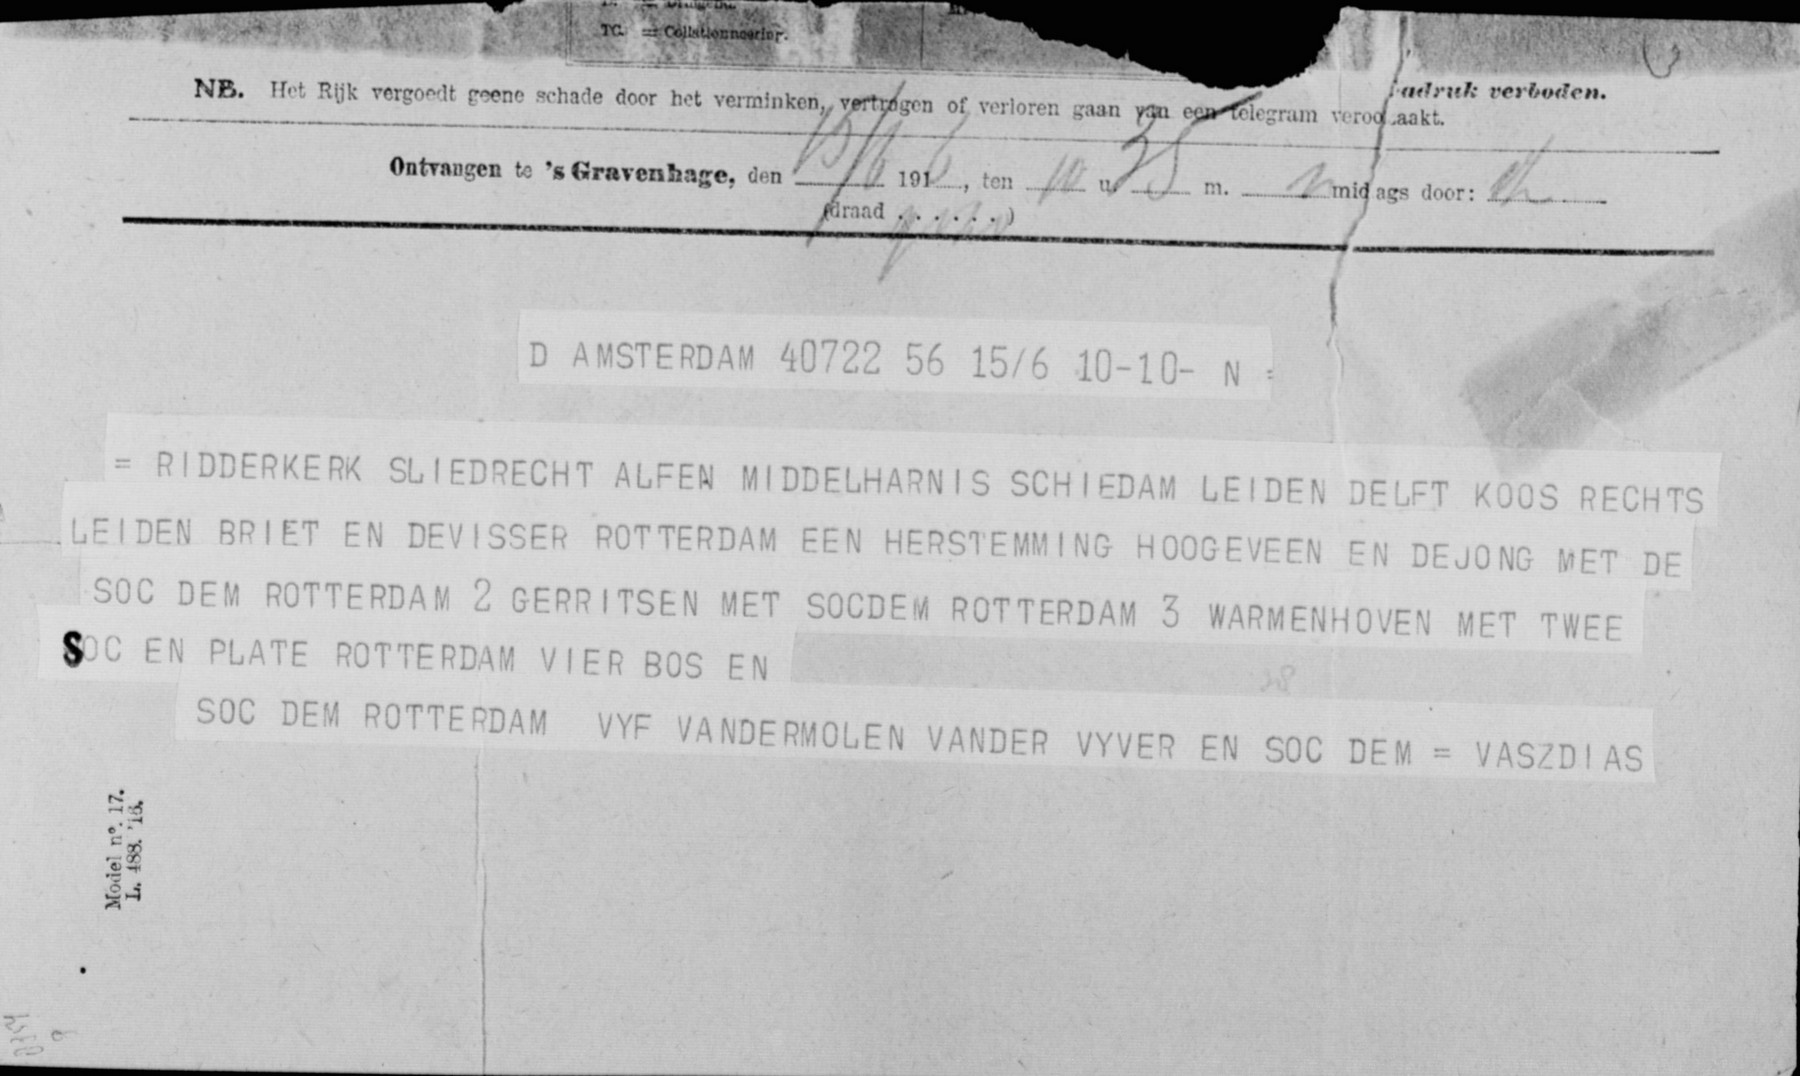 TC. = Collationneering.
NB. Het Rijk vergoedt geene schade door het verminken, vertragen of verloren gaan van een telegram veroo aakt.
adruk verboden.
Ontvangen te 's Gravenhage, den 15/6 1916, ten 10 u 35 m. n midags door:
(draad . . . . . . )
D AMSTERDAM 40722 56 15/6 10-10- N =
= RIDDERKERK SLIEDRECHT ALFEN MIDDELHARNIS SCHIEDAM LEIDEN DELFT KOOS RECHTS
LEIDEN BRIET EN DEVISSER ROTTERDAM EEN HERSTEMMING HOOGEVEEN EN DEJONG MET DE
SOC DEM ROTTERDAM 2 GERRITSEN MET SOCDEM ROTTERDAM 3 WARMENHOVEN MET TWEE
SOC EN PLATE ROTTERDAM VIER BOS EN
SOC DEM ROTTERDAM VYF VANDERMOLEN VANDER VYVER EN SOC DEM = VASZDIAS
Model n°. 17.
L. 488. '16.